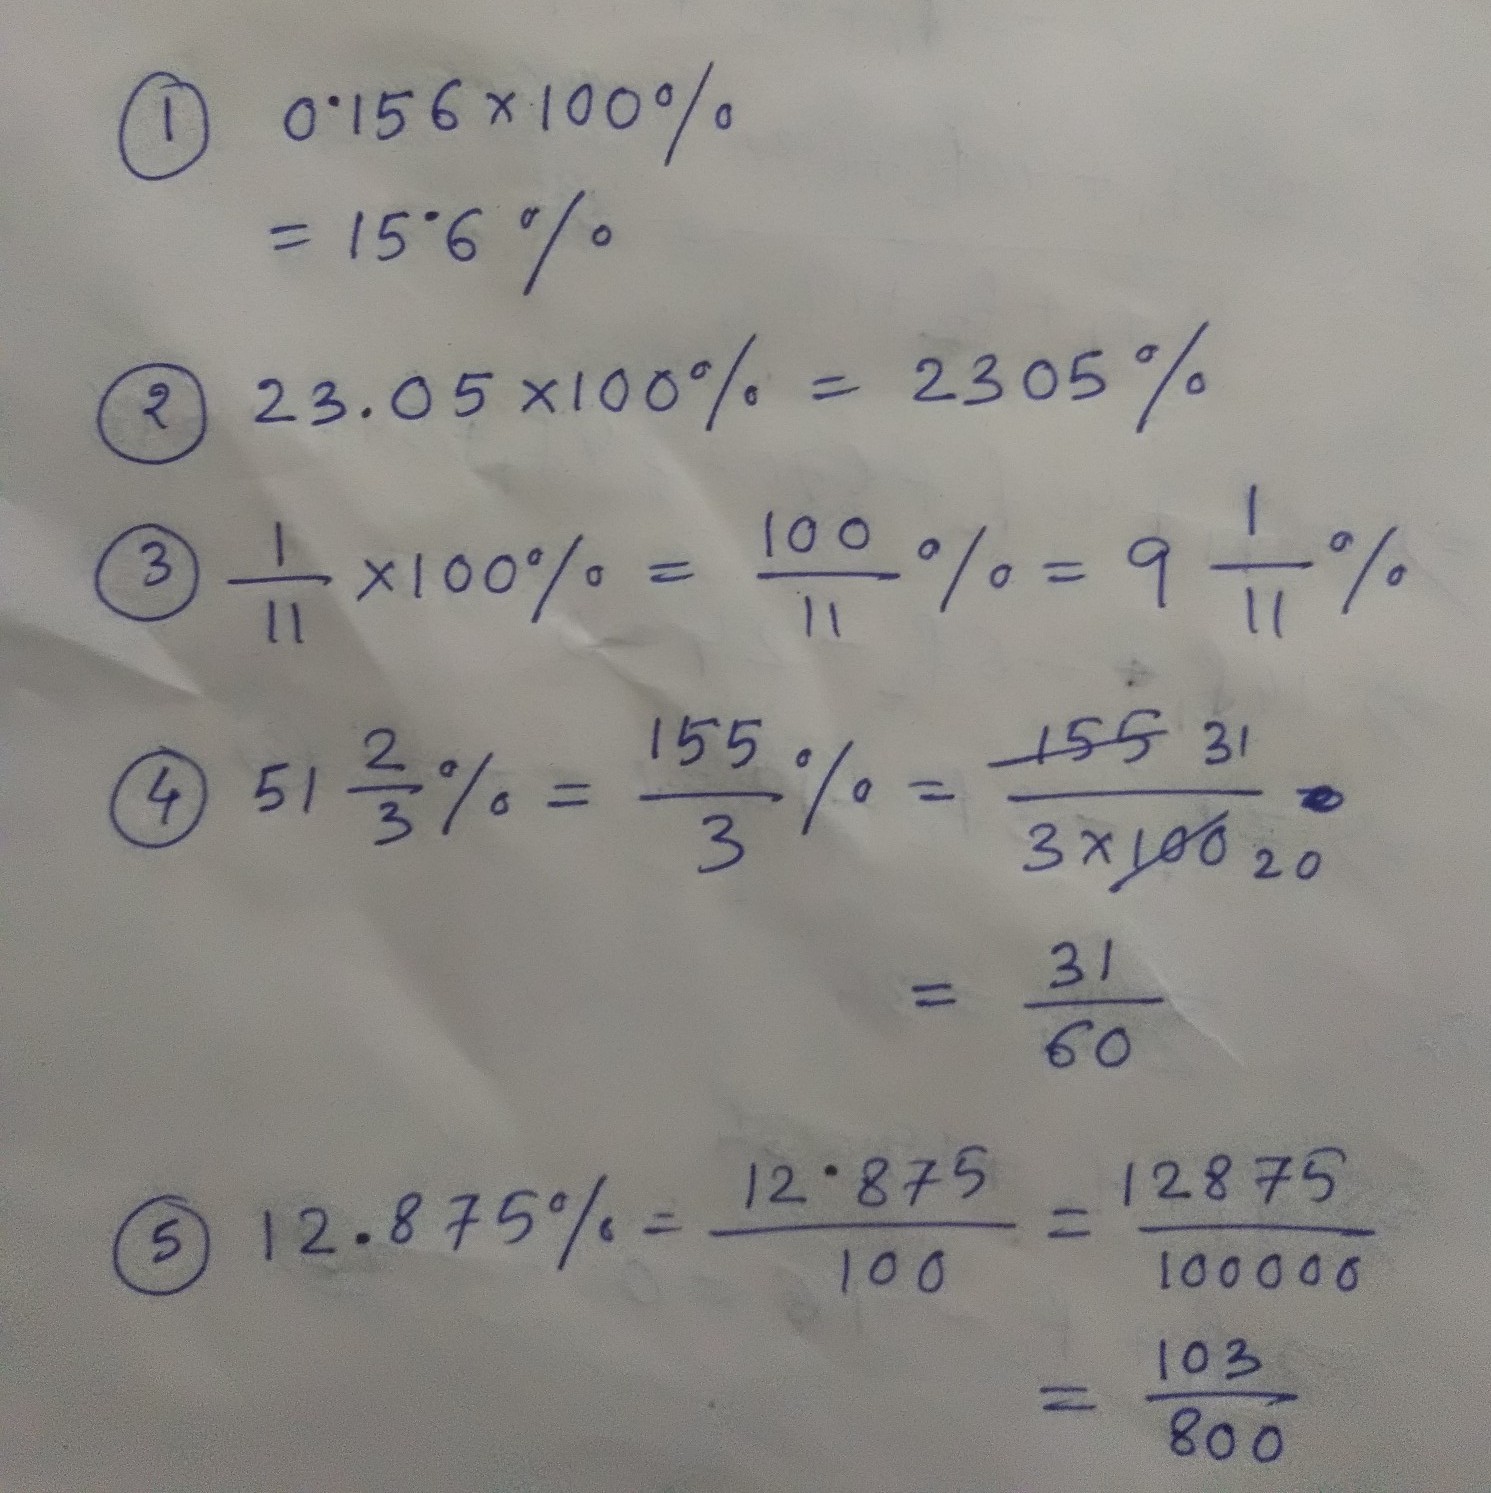 ① 0·156 × 100%
= 15·6 %
② 23.05 × 100% = 2305 %
③ 1/11 × 100% = 100/11 % = 9 1/11 %
④ 51 2/3 % = 155/3 % = 155 31 / 3 × 100 20
= 31/60
⑤ 12.875% = 12·875/100 = 12875/100000
= 103/800